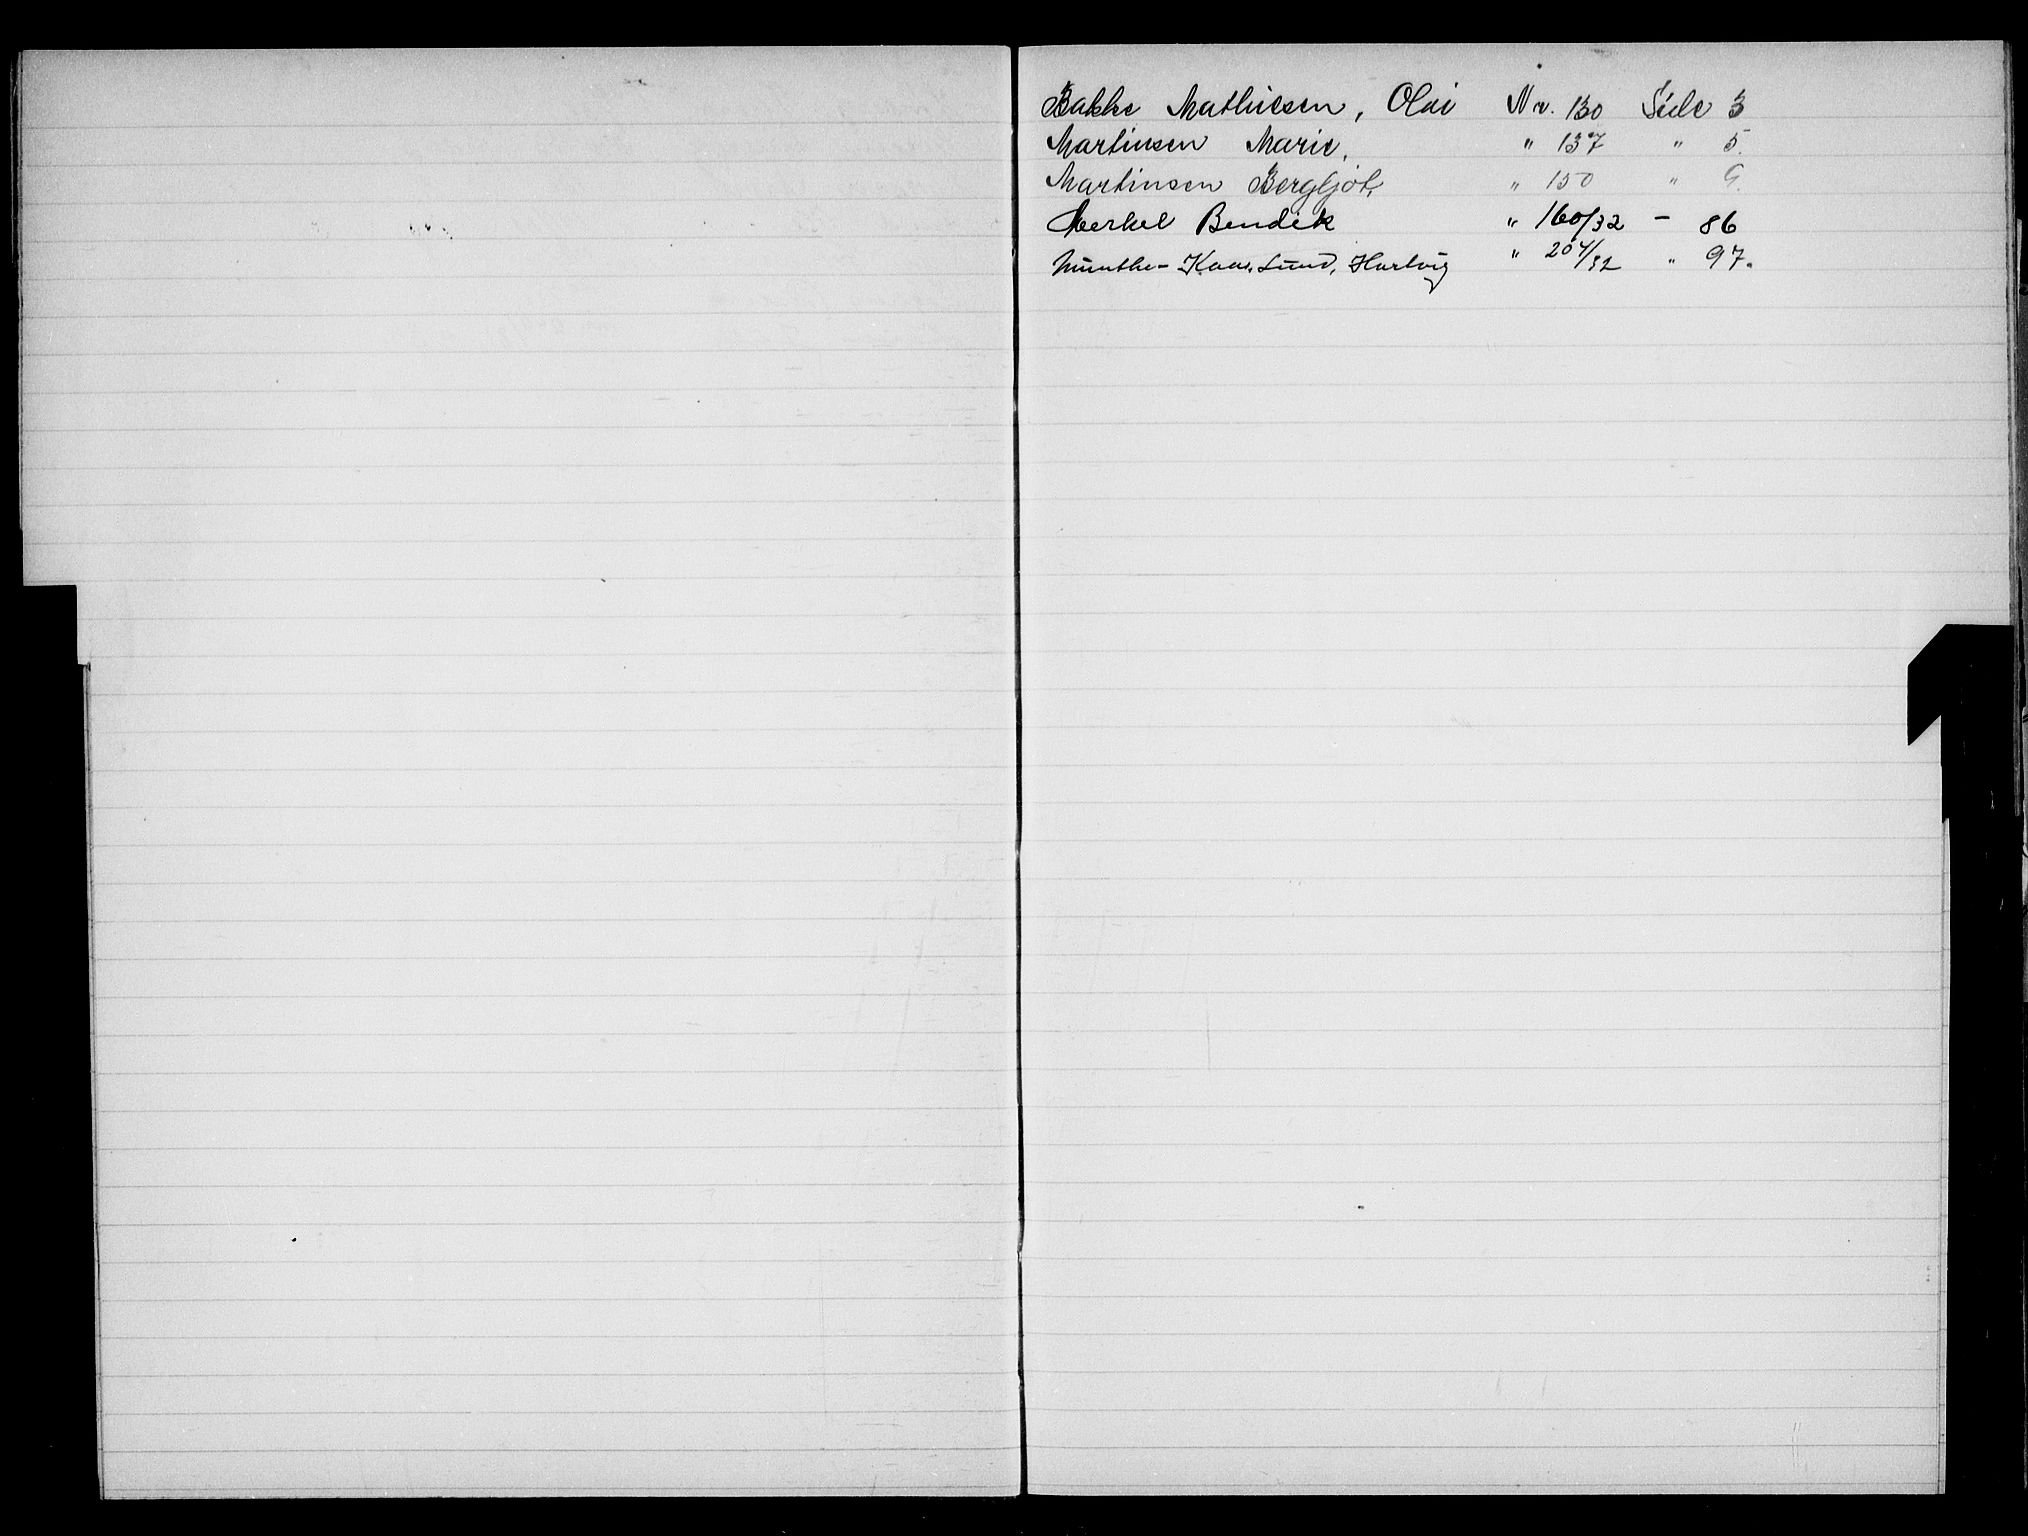 Bakke Mathiesen, Olai Nr. 130 Side 3
Martinsen Marie, " 137 " 5.
Martinsen Bergljot, " 150 " 9.
Merkel Bendik " 160/32 - 86
Munthe-Kaas Lund, Hartvig " 204/32 " 97.